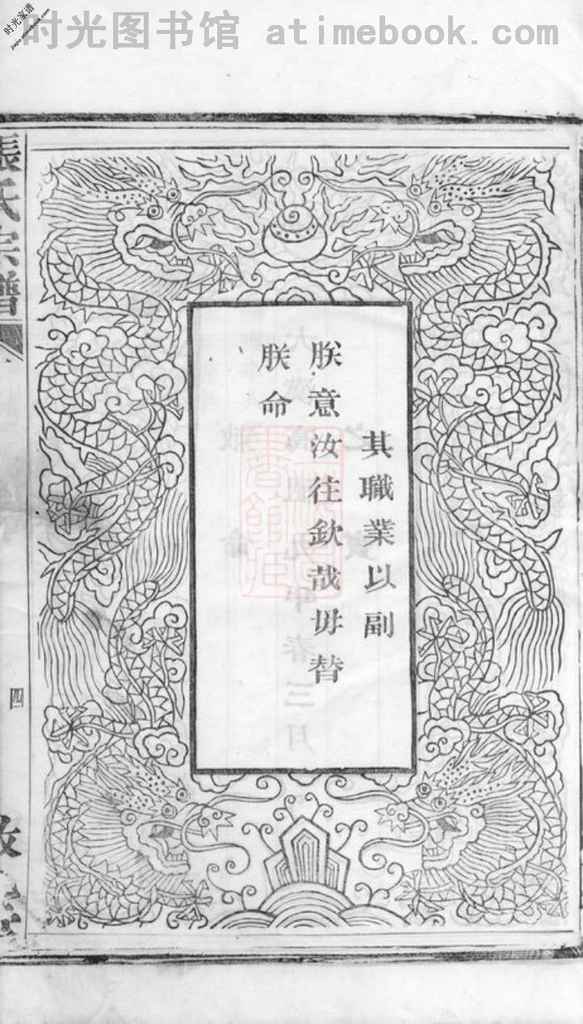 时光图书馆 atimebook.com
时光家谱
其職業以副
朕意汝往欽哉毋替
朕命
張氏宗譜
四